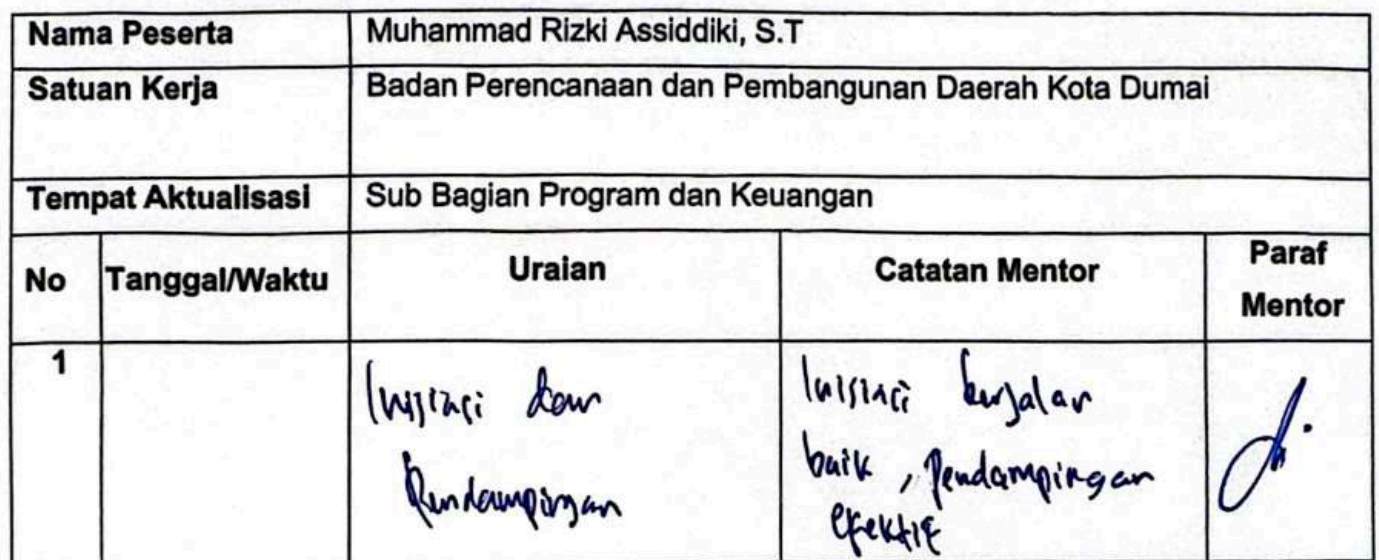 Nama Peserta Muhammad Rizki Assiddiki, S.T
Satuan Kerja Badan Perencanaan dan Pembangunan Daerah Kota Dumai
Tempat Aktualisasi Sub Bagian Program dan Keuangan
No Tanggal/Waktu Uraian Catatan Mentor Paraf Mentor
1
Inisiasi dan
Pendampingan
Inisiasi berjalan
baik, Pendampingan
efektif